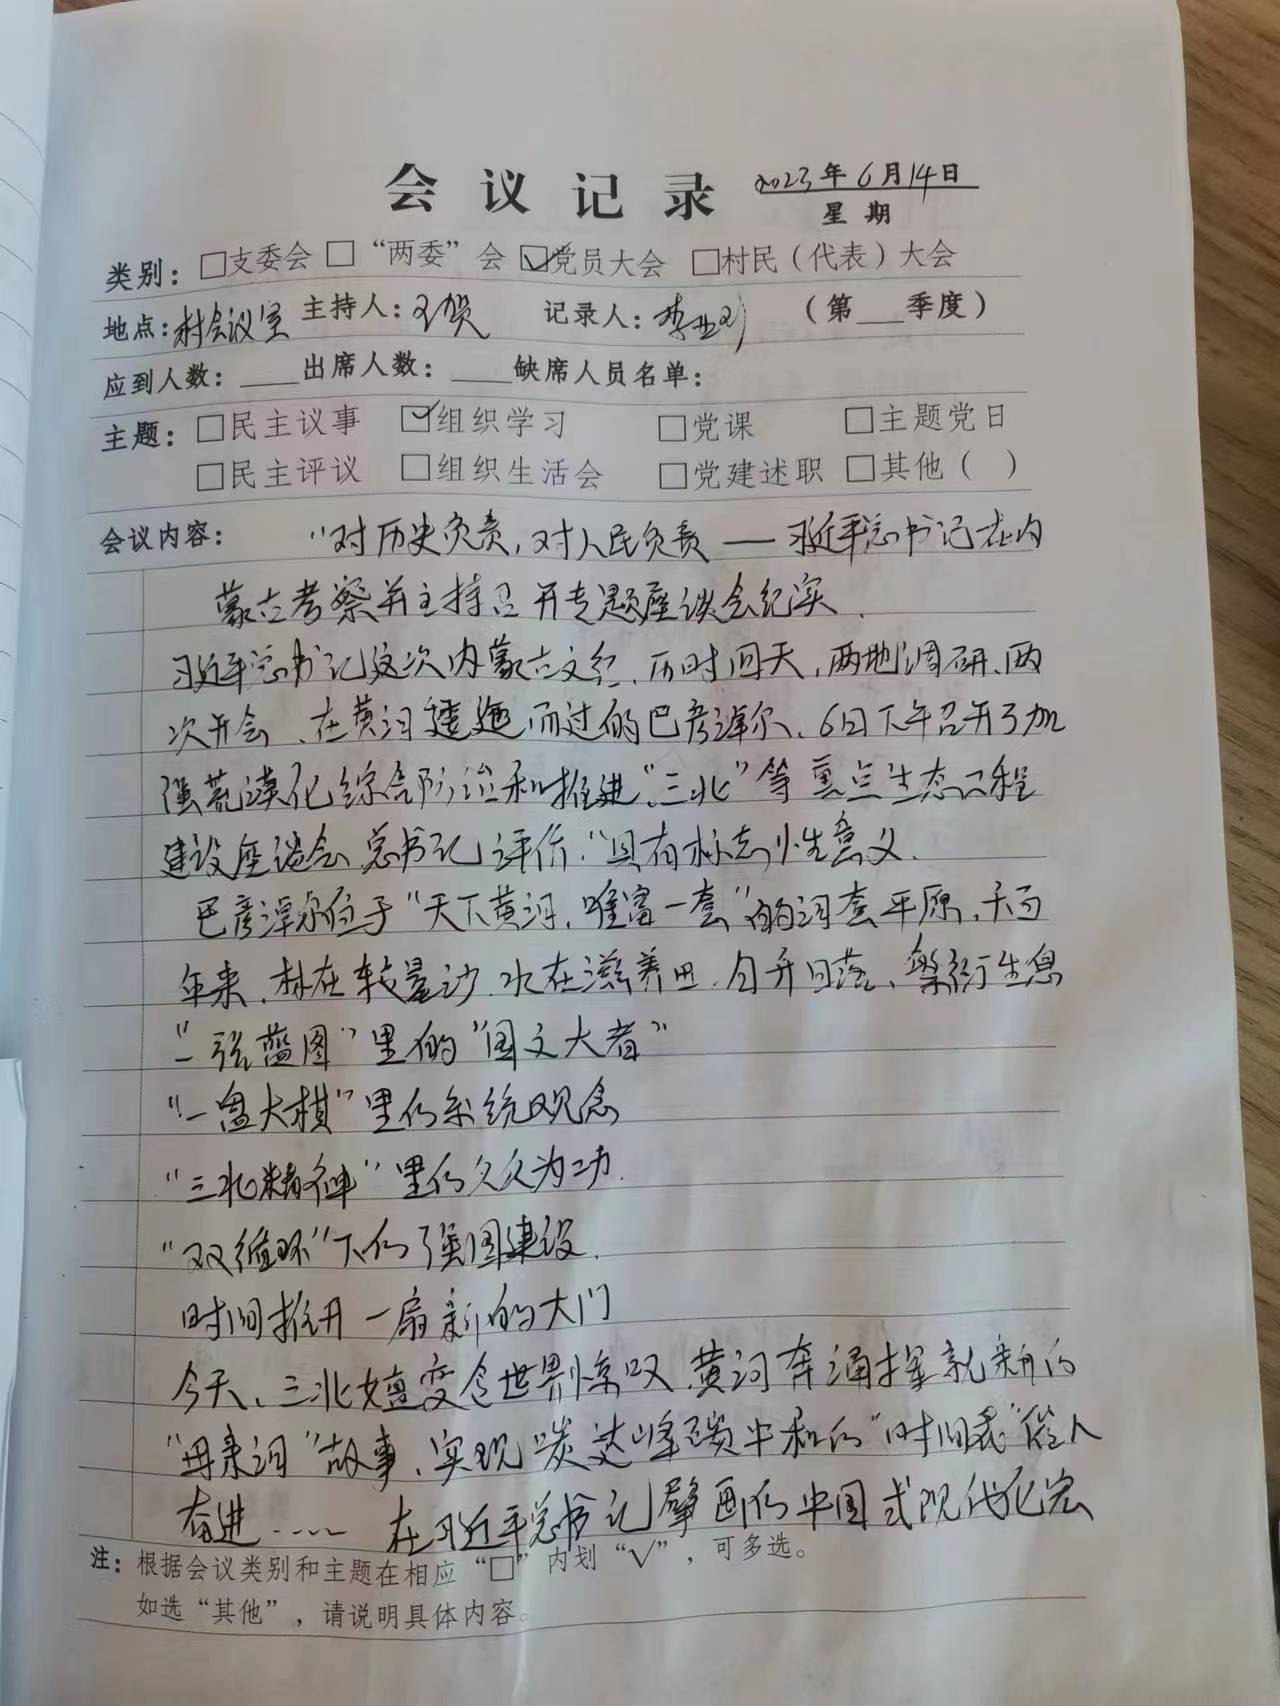 会议记录 2023年6月14日
星期
类别：□支委会 □“两委”会 ☑党员大会 □村民（代表）大会
地点：村会议室 主持人：王贺 记录人：李亚 （第＿季度）
应到人数：＿＿出席人数：＿＿缺席人员名单：
主题：□民主议事 ☑组织学习 □党课 □主题党日
□民主评议 □组织生活会 □党建述职 □其他（ ）
会议内容： “对历史负责，对人民负责——习近平总书记在内
蒙古考察并主持召开专题座谈会纪实
习近平总书记这次内蒙古之行、历时四天，两地调研、两
次开会、在黄河逶迤而过的巴彦淖尔、6日下午召开了加
强荒漠化综合防治和推进“三北”等重点生态工程
建设座谈会 总书记评价：“具有标志性意义.
巴彦淖尔位于“天下黄河，唯富一套”的河套平原，千百
年来，林在较量沙.水在滋养田.日升日落、繁衍生息
“一张蓝图”里的“国之大者”
“一盘大棋”里的系统观念
“三北精神”里的久久为功.
“双循环”下的强国建设.
时间推开一扇新的大门
今天、三北嬗变令世界惊叹.黄河奔涌 就新的
“母亲河”故事、实现“碳达峰碳中和的“时间表”催人
奋进…… 在习近平总书记擘画的中国式现代化宏
注：根据会议类别和主题在相应“□”内划“√”，可多选。
如选“其他”，请说明具体内容。